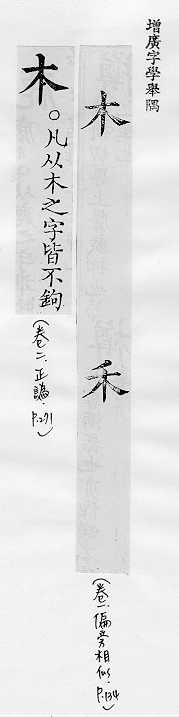 增廣字學舉隅
木 禾
(卷一、偏旁相似、P.134)
木。凡从木之字皆不鉤
(卷二、正譌、P.271)